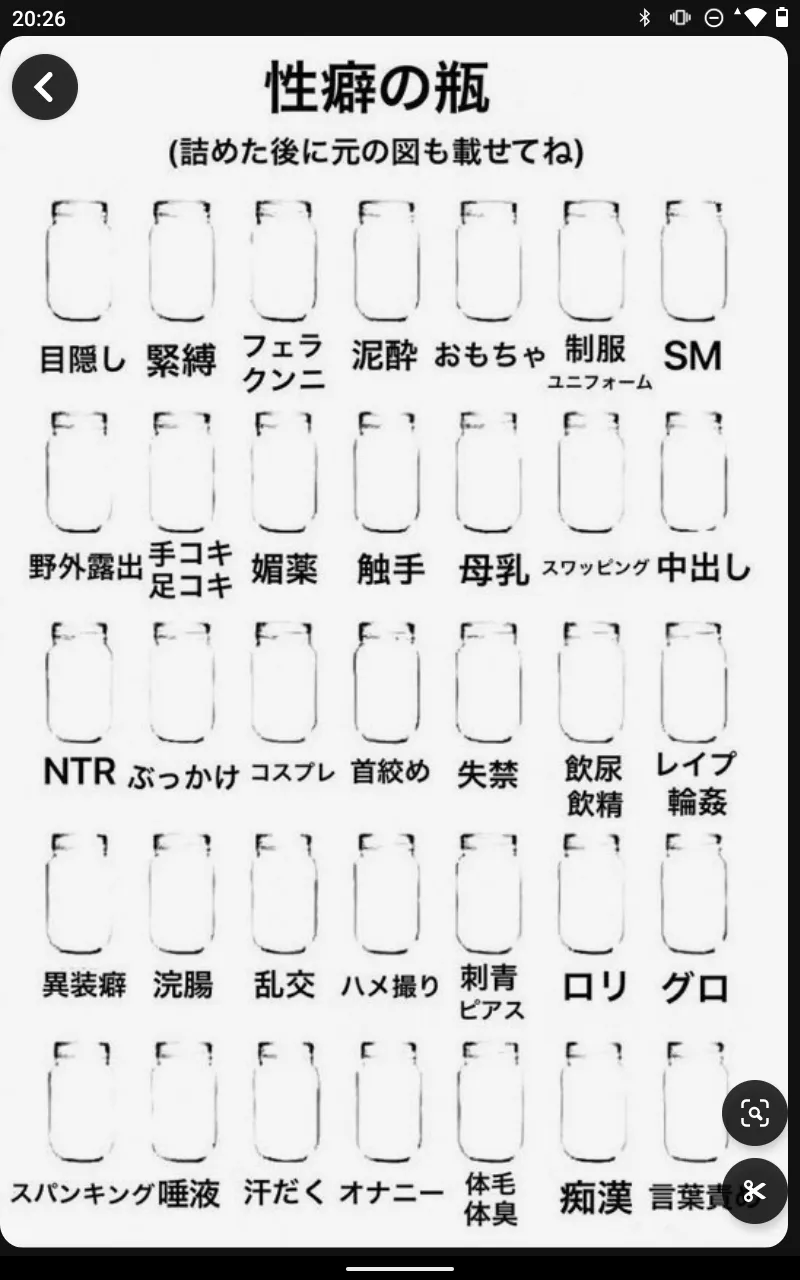 20:26
性癖の瓶
(詰めた後に元の図も載せてね)
目隠し 緊縛 フェラ クンニ 泥酔 おもちゃ 制服 ユニフォーム SM
野外露出 手コキ 足コキ 媚薬 触手 母乳 スワッピング 中出し
NTR ぶっかけ コスプレ 首絞め 失禁 飲尿 飲精 レイプ 輪姦
異装癖 浣腸 乱交 ハメ撮り 刺青 ピアス ロリ グロ
スパンキング 唾液 汗だく オナニー 体毛 体臭 痴漢 言葉責め